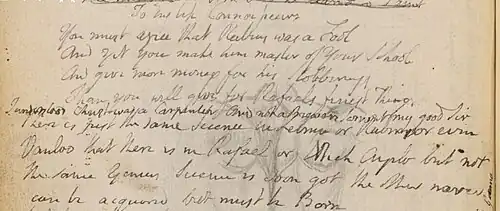 To the English Connoisseurs
You must agree that Rubens was a Fool
And yet you make him master of Your School
And give more money for his Slobberings
Than you will give for Rafaels finest Things
I understood Christ was a Carpenter And not a Brewers Servant my good Sir
There is just the same Science in or Rubens or even
Vanloo That there is in Rafael or Mich Angelo but not
the same Genius Science is soon got the other never
can be acquired but must be Born